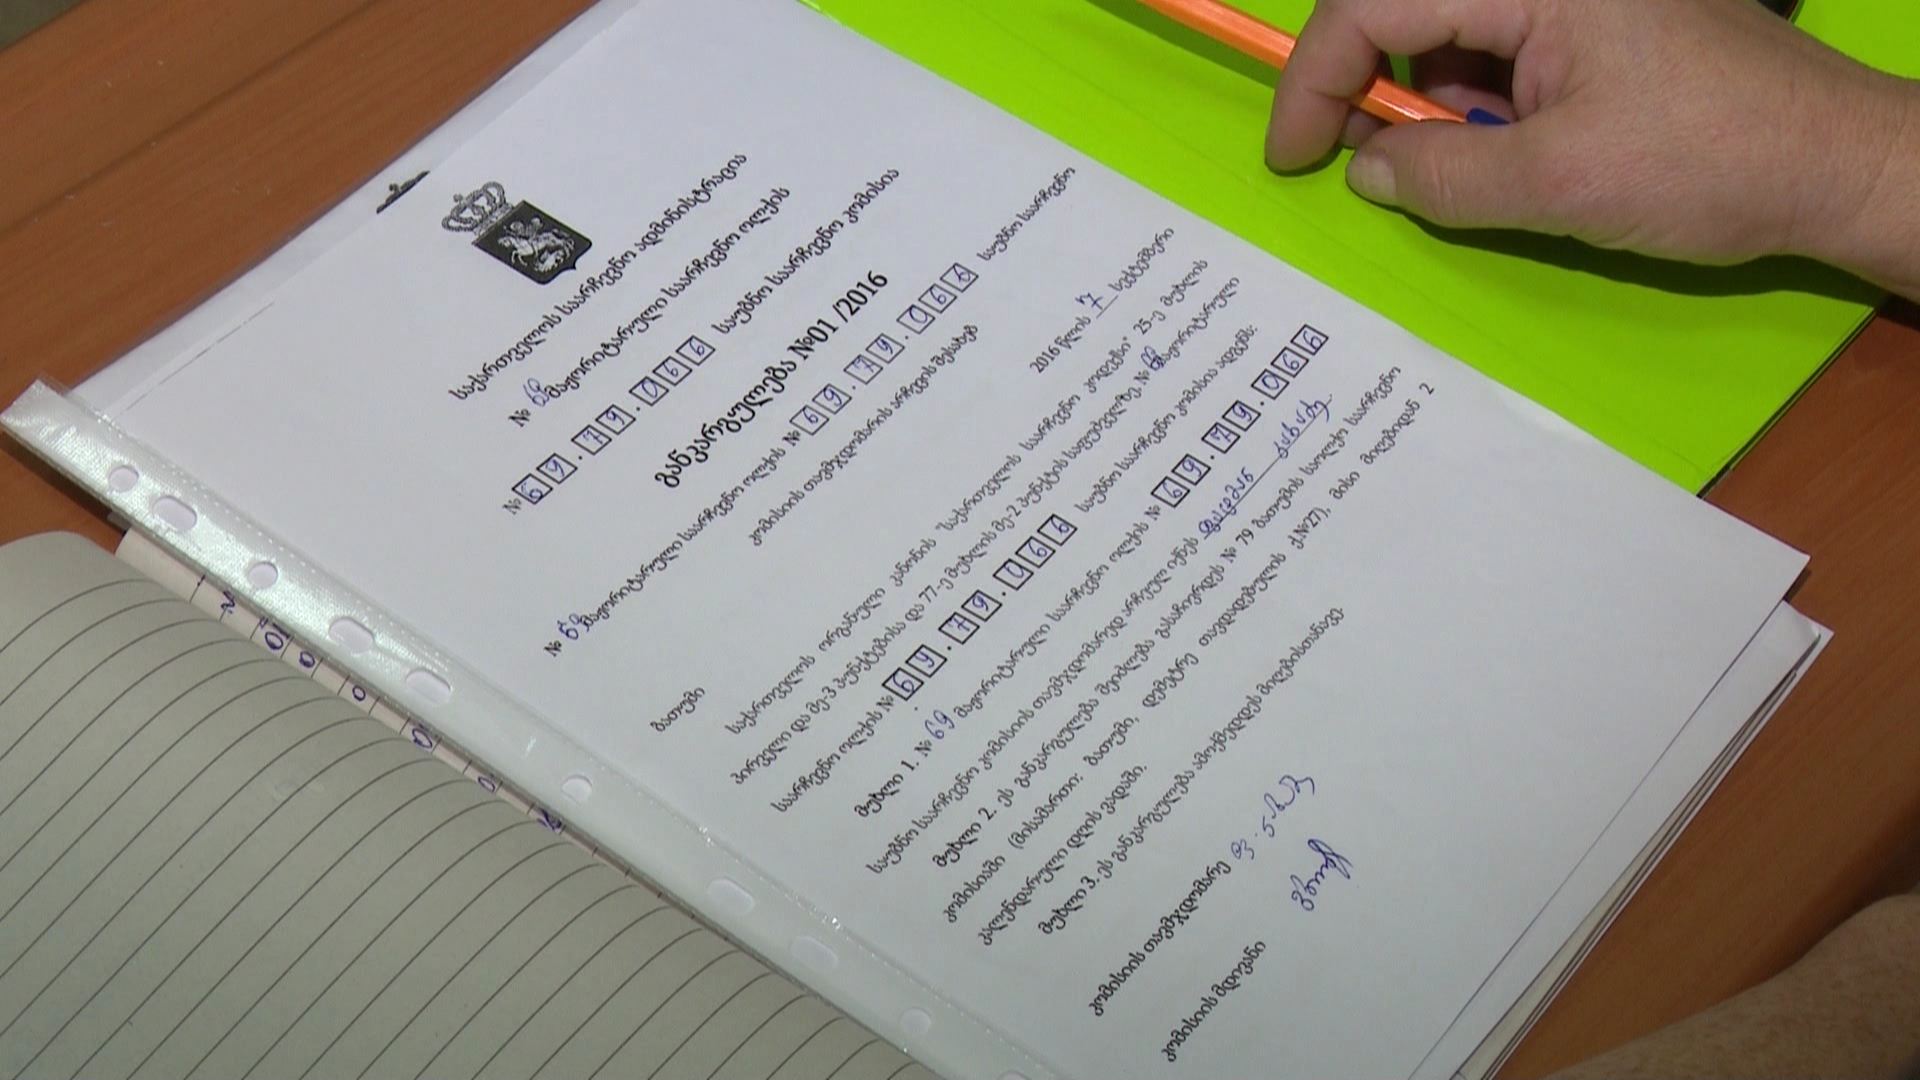 საქართველოს საარჩევნო ადმინისტრაცია
№ 69 მაჟორიტარული საარჩევნო ოლქის
№ 69.79.066 საუბნო საარჩევნო კომისია
განკარგულება №01 /2016
№ 69 მაჟორიტარული საარჩევნო ოლქის № 69.79.066 საუბნო საარჩევნო
კომისიის თავმჯდომარის არჩევის შესახებ
ბათუმი
2016 წლის 7 სექტემბერი
საქართველოს ორგანული კანონის "საქართველოს საარჩევნო კოდექსი" 25-ე მუხლის
პირველი და მე-3 პუნქტებისა და 77-ე მუხლის მე-2 პუნქტის საფუძველზე, № 69 მაჟორიტარული
საარჩევნო ოლქის № 69.79.066 საუბნო საარჩევნო კომისია ადგენს:
მუხლი 1. № 69 მაჟორიტარული საარჩევნო ოლქის № 69.79.066
საუბნო საარჩევნო კომისიის თავმჯდომარედ არჩეულ იქნეს
მუხლი 2. ეს განკარგულება შეიძლება გასაჩივრდეს № 79 ბათუმის საოლქო საარჩევნო
კომისიაში (მისამართი: ბათუმი, დემეტრე თავდადებულის ქ.№27), მისი მიღებიდან 2
კალენდარული დღის ვადაში.
მუხლი 3. ეს განკარგულება ამოქმედდეს მიღებისთანავე
კომისიის თავმჯდომარე
კომისიის მდივანი